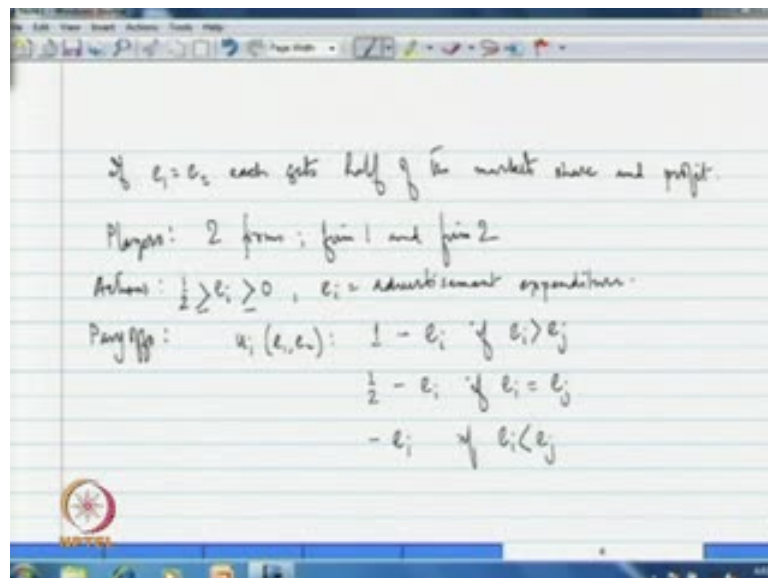 If e₁ = e₂ each gets half of the market share and profit.
Players: 2 firms; firm 1 and firm 2
Actions: 1/2 ≥ eᵢ ≥ 0, eᵢ = advertisement expenditure.
Pay offs: uᵢ (e₁, e₂): 1 - eᵢ if eᵢ > eⱼ
1/2 - eᵢ if eᵢ = eⱼ
- eᵢ if eᵢ < eⱼ
NPTEL